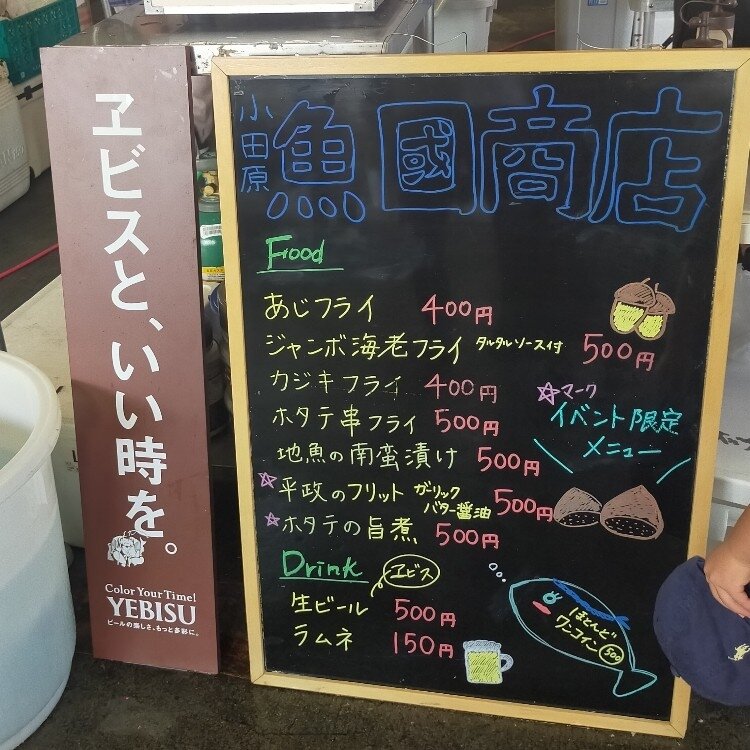 ヱビスと、いい時を。
Color Your Time!
YEBISU
ビールの楽しさ、もっと多彩に。
小田原
魚國商店
Food
あじフライ 400円
ジャンボ海老フライ タルタルソース付 500円
カジキフライ 400円
ホタテ串フライ 500円
地魚の南蛮漬け 500円
☆平政のフリット ガーリックバター醤油 500円
☆ホタテの旨煮 500円
☆マーク
イベント限定
メニュー
Drink
ヱビス
生ビール 500円
ラムネ 150円
ほとんど
ワンコイン
500